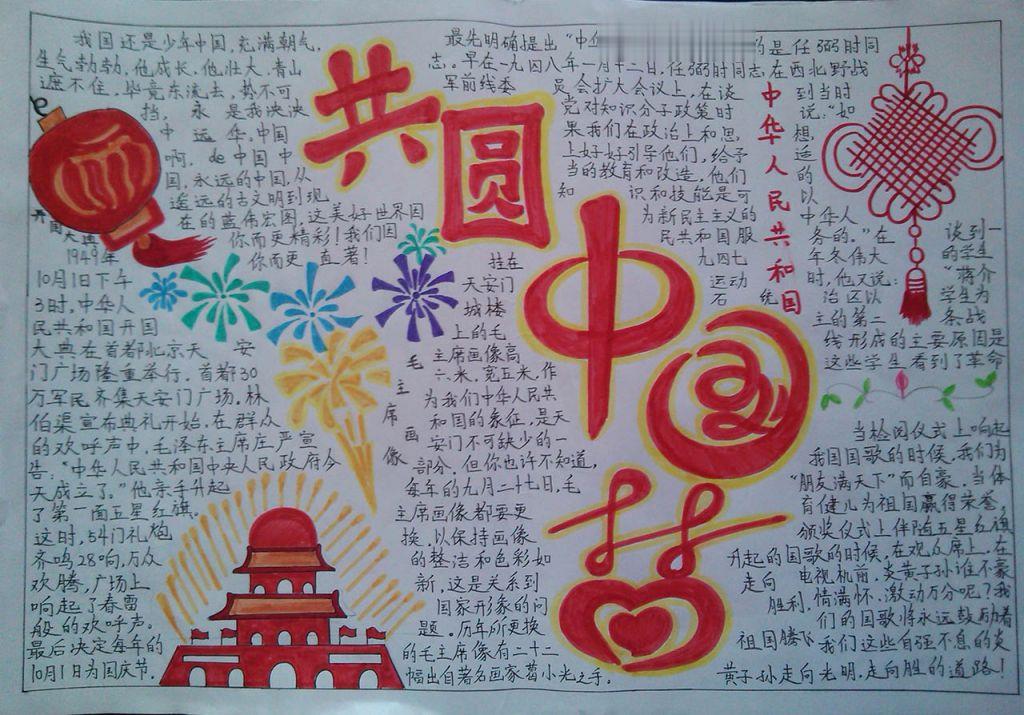 我国还是少年中国,充满朝气,
生气勃勃,他成长,他壮大,青山
遮不住,毕竟东流去,势不可
挡,永是我泱泱
中远华,中国
啊,de中国中
国,永远的中国,从
遥远的古文明到现
在的蓝伟宏图,这美好世界因
你而更精彩!我们因
你而更直著!
开国大典
1949年
10月1日下午
3时,中华人
民共和国开国
大典在首都北京天安
门广场隆重举行,首都30
万军民齐集天安门广场,林
伯渠宣布典礼开始,在群众
的欢呼声中,毛泽东主席庄严宣
告:“中华人民共和国中央人民政府今
天成立了。”他亲手升起
了第一面五星红旗。
这时,54门礼炮
齐鸣28响,万众
欢腾,广场上
响起了春雷
般的欢呼声。
最后决定每年的
10月1日为国庆节.
共圆中国梦
毛主席画像
挂在
天安门
城楼
上的毛
主席画像高
六米,宽五米,作
为我们中华人民共
和国的象征,是天
安门不可缺少的一
部分,但你也许不知道,
每年的九月二十七日,毛
主席画像都要更
换,以保持画像
的整洁和色彩如
新,这是关系到
国家形象的问
题。历年所更换
的毛主席像有二十二
幅出自著名画家葛小光之手。
中华人民共和国
最先明确提出“中华
的是任弼时同
志。早在一九四八年一月十二日,任弼时同志在西北野战
军前线委员会扩大会议上,在谈到当时
党对知识分子政策时说:“如
果我们在政治上和思想,
上好好引导他们,给予适
当的教育和改造,他们的
知识和技能是可以
为新民主主义的中华人
民共和国服务的。”在
九四七年冬伟大
运动时,他又说:
石统治区以
谈到一
的学生
“蒋介
学生为
主的第二条战
线形成的主要原因是
这些学生看到了革命
当检阅仪式上响起
我国国歌的时候,我们为
“朋友满天下”而自豪,当体
育健儿为祖国赢得荣誉,
颁奖仪式上伴随五星红旗
升起的国歌的时候,在观众席上,在
走向电视机前,炎黄子孙谁不豪
胜利,情满怀,激动万分呢?我
们的国歌将永远鼓励着
祖国腾飞我们这些自强不息的炎
黄子孙走向光明,走向胜的道路!